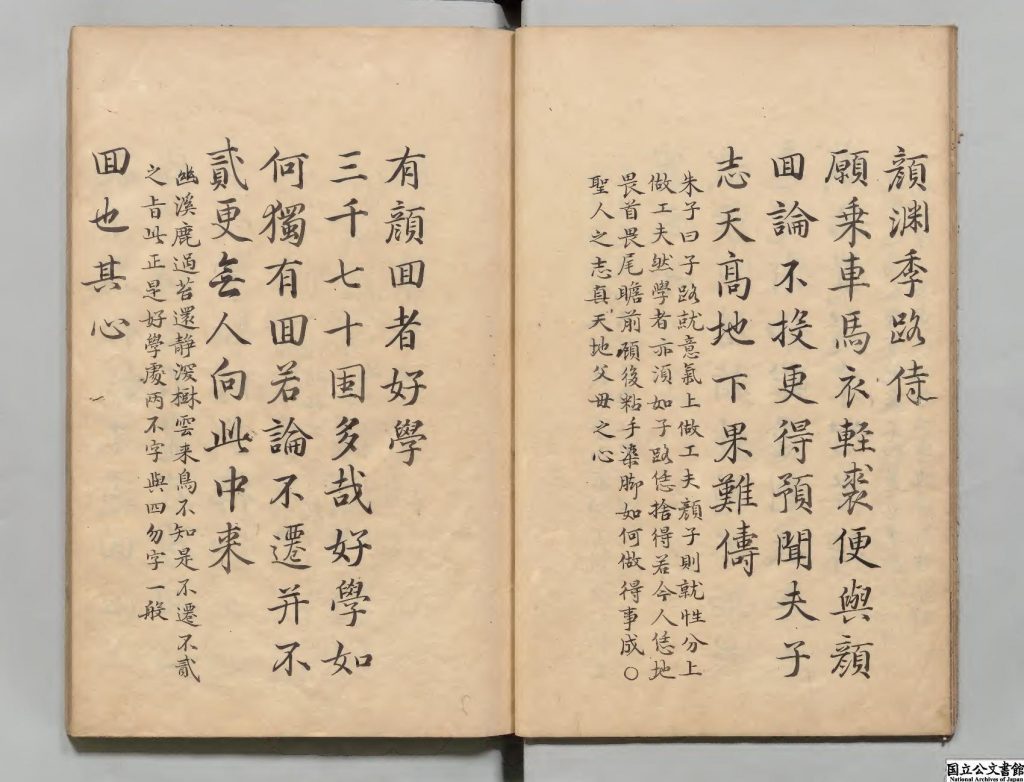 顔渊季路侍
願乗車馬衣軽裘便與顔
囬論不投更得預聞夫子
志天高地下果難儔
朱子曰子路就意氣上做工夫顔子則就性分上
做工夫然學者亦湏如子路恁捨得若今人恁地
畏首畏尾瞻前顧後粘手染脚如何做得事成○
聖人之志真天地父母之心
有顔囬者好學
三千七十国多哉好學如
何獨有囬若論不遷并不
貳更無人向此中来
幽溪鹿過苔還静深樹雲来鳥不知是不遷不貳
之旨此正是好學處两不字與四勿字一般
囬也其心
国立公文書館
National Archives of Japan